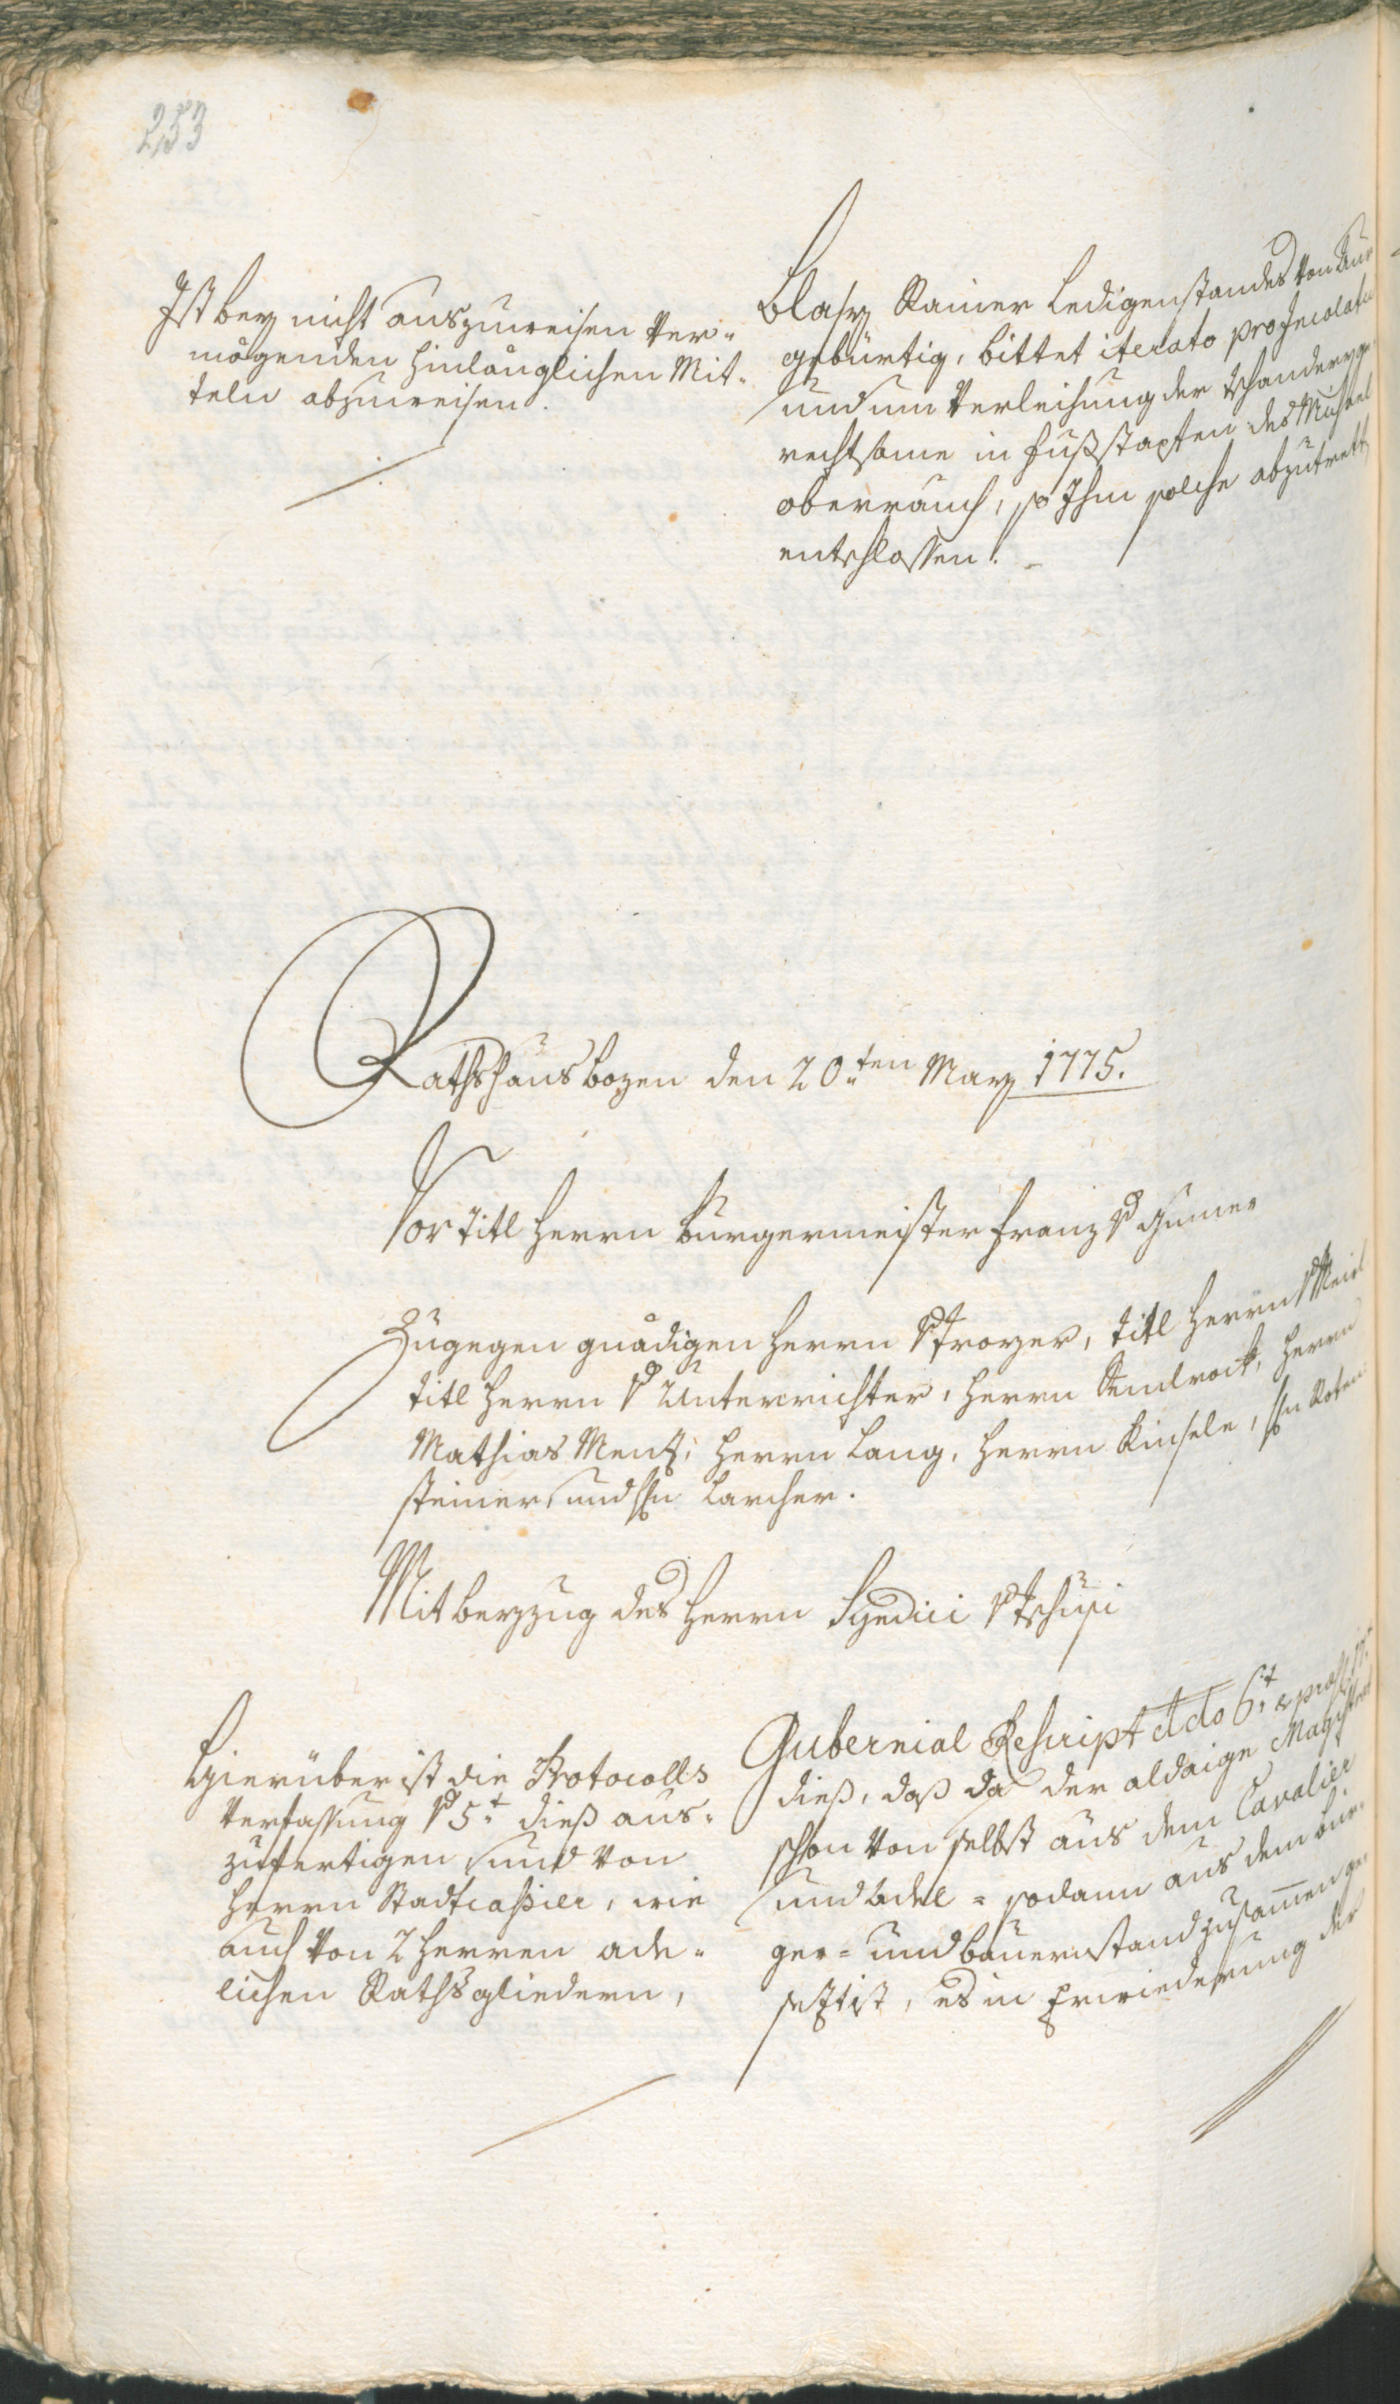 253
Ist bey nicht auszuweisen ver-
mögenden hinlänglichen Mit-
teln abzuweisen.
Blasy Rainer ledigenstandes von
gebürtig, bittet iterato pro Incolatu
und um Verleihung der
rechtsame in Fußstapfen des Michael
Oberrauch, so Ihm solche abzutretten
entschlossen.
Rathshaus Bozen den 20.ten Marz 1775.
Vor Titl Herrn Burgermeister Franz v Gumer
Zugegen gnädigen Herrn v Troyer, Titl Herrn v
Titl Herrn v Unterrichter, Herrn Stendrock, Herrn
Mathias Menz, Herrn Lang, Herrn Kinsele, Hrn Roten-
steiner, und Hrn Larcher.
Mit Beyzug des Herrn Syndici v Tschusi
Hierüber ist die Protocolls
Verfassung v 5.t dieß aus-
zufertigen und von
Herrn Stadtcassier, wie
auch von 2 Herren ade-
lichen Rathsgliedern,
Gubernial Rescript ddo 6.t &
dieß, daß da der aldaige Magistrat
schon von selbst aus dem Cavalier
und Adel- sodann aus dem Bur-
ger- und Bauernstand zusammen ge-
setzt ist, es in Erwiederung der